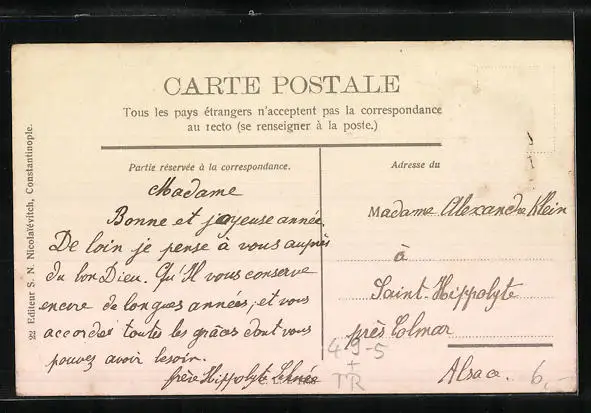 CARTE POSTALE
Tous les pays étrangers n'acceptent pas la correspondance
au recto (se renseigner à la poste.)
Partie réservée à la correspondance.
Adresse du
Madame
Bonne et joyeuse année.
De loin je pense à vous auprès
du bon Dieu. Qu'Il vous conserve
encore de longues années, et vous
accordes toutes les grâces dont vous
pouvez avoir besoin.
frère Hippolyte
Madame Alexandre Klein
à
Saint-Hippolyte
près Colmar
Alsace.
6,-
TR
22 Editeur S. N. Nicolaïévitch, Constantinople.